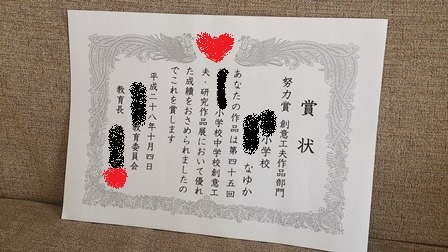 賞状
努力賞 創意工夫作品部門
小学校
なゆか
あなたの作品は第四十五回
小学校中学校創意工
夫・研究作品展において優れ
た成績をおさめられましたの
でこれを賞します
平成二十八年十月四日
教育委員会
教育長